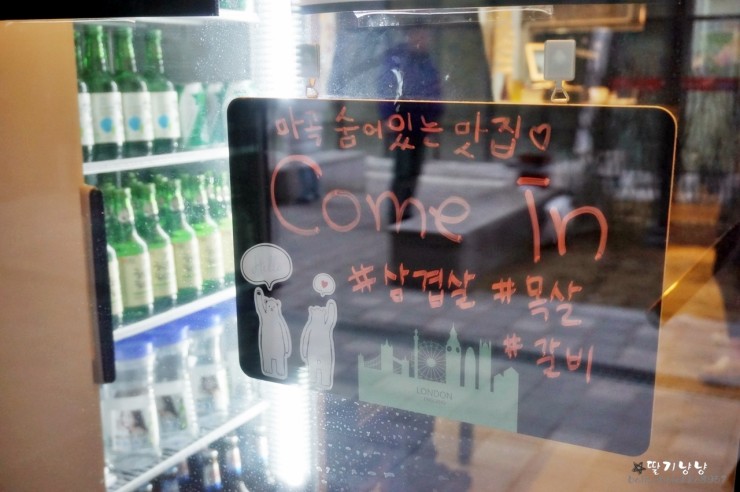 마곡 숨어있는 맛집♡
Come in
#삼겹살 #목살
#갈비
LONDON
딸기냥냥